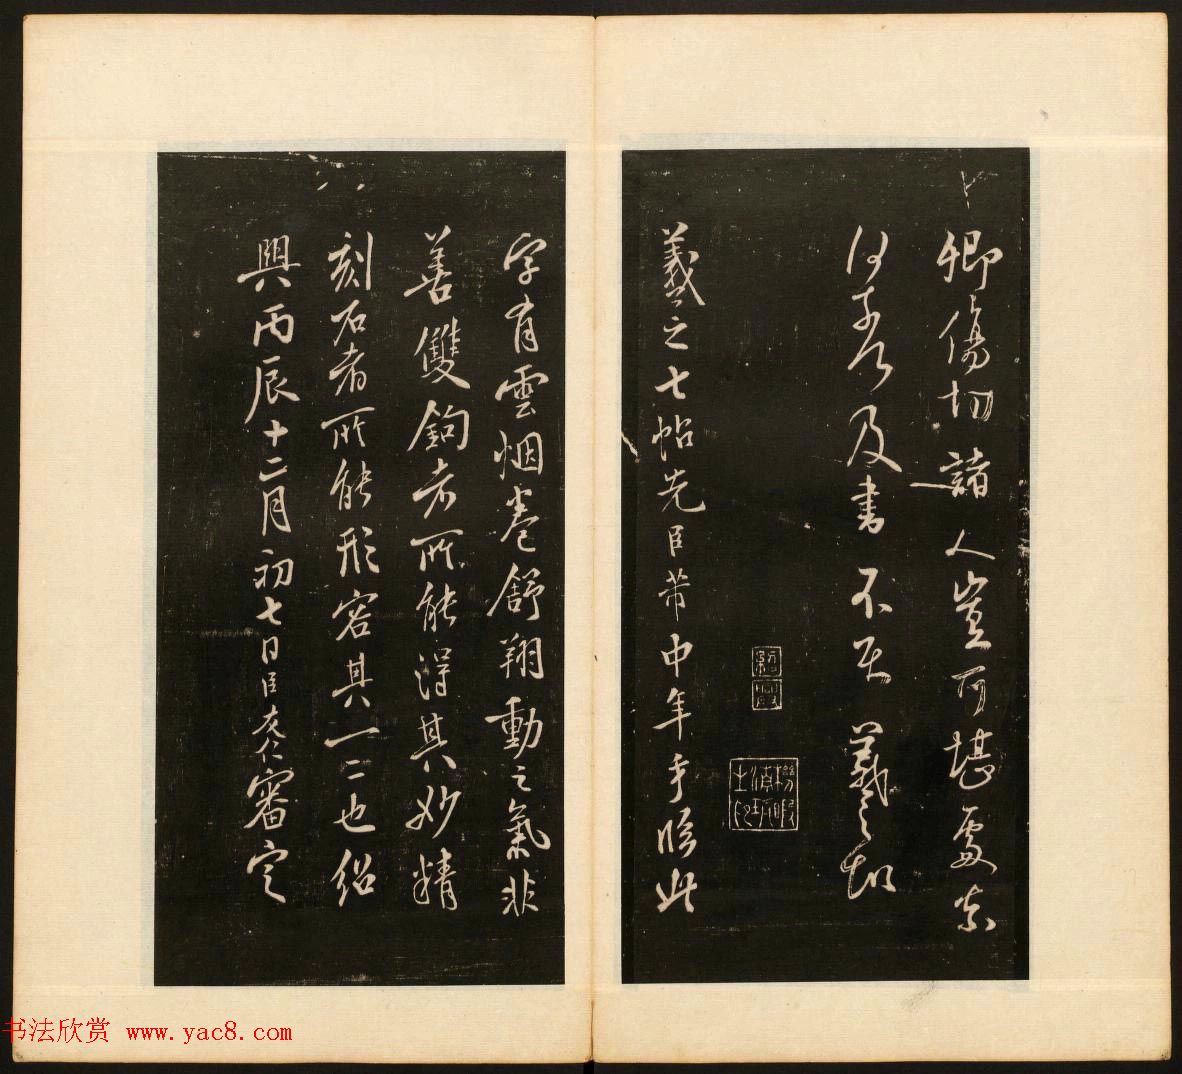 卿傷切諸人豈可堪處奈
何奈何及書不具羲之頓
紹興
羲之七帖先臣芾中年手臨此
字有雲烟卷舒翔動之氣非
善雙鉤者所能得其妙精
刻石者所能形容其一二也紹
興丙辰十二月初七日臣友仁審定
书法欣赏 www.yac8.com